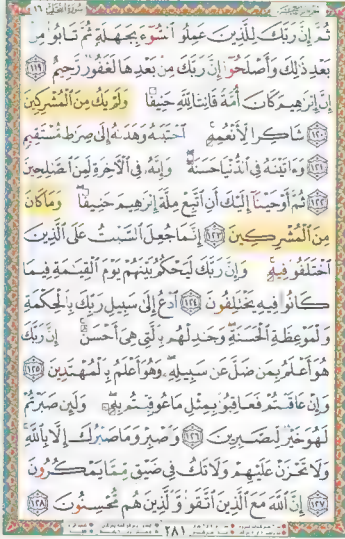 سُورَةُ النَّحْلِ ١٦
ثُمَّ إِنَّ رَبَّكَ لِلَّذِينَ عَمِلُوا السُّوٓءَ بِجَهَـٰلَةٍ ثُمَّ تَابُوا مِنۢ
بَعْدِ ذَٰلِكَ وَأَصْلَحُوٓا إِنَّ رَبَّكَ مِنۢ بَعْدِهَا لَغَفُورٌ رَّحِيمٌ ١١٩
إِنَّ إِبْرَٰهِيمَ كَانَ أُمَّةً قَانِتًا لِّلَّهِ حَنِيفًا وَلَمْ يَكُ مِنَ الْمُشْرِكِينَ
١٢٠ شَاكِرًا لِّأَنْعُمِهِ اجْتَبَىٰهُ وَهَدَىٰهُ إِلَىٰ صِرَٰطٍ مُّسْتَقِيمٍ
١٢١ وَءَاتَيْنَـٰهُ فِي الدُّنْيَا حَسَنَةً وَإِنَّهُ فِي الْأَخِرَةِ لَمِنَ الصَّـٰلِحِينَ
١٢٢ ثُمَّ أَوْحَيْنَآ إِلَيْكَ أَنِ اتَّبِعْ مِلَّةَ إِبْرَٰهِيمَ حَنِيفًا وَمَا كَانَ
مِنَ الْمُشْرِكِينَ ١٢٣ إِنَّمَا جُعِلَ السَّبْتُ عَلَى الَّذِينَ
اخْتَلَفُوا فِيهِ وَإِنَّ رَبَّكَ لَيَحْكُمُ بَيْنَهُمْ يَوْمَ الْقِيَـٰمَةِ فِيمَا
كَانُوا فِيهِ يَخْتَلِفُونَ ١٢٤ ادْعُ إِلَىٰ سَبِيلِ رَبِّكَ بِالْحِكْمَةِ
وَالْمَوْعِظَةِ الْحَسَنَةِ وَجَـٰدِلْهُم بِالَّتِي هِيَ أَحْسَنُ إِنَّ رَبَّكَ
هُوَ أَعْلَمُ بِمَن ضَلَّ عَن سَبِيلِهِ وَهُوَ أَعْلَمُ بِالْمُهْتَدِينَ ١٢٥
وَإِنْ عَاقَبْتُمْ فَعَاقِبُوا بِمِثْلِ مَا عُوقِبْتُم بِهِ وَلَئِن صَبَرْتُمْ
لَهُوَ خَيْرٌ لِّلصَّـٰبِرِينَ ١٢٦ وَاصْبِرْ وَمَا صَبْرُكَ إِلَّا بِاللَّهِ
وَلَا تَحْزَنْ عَلَيْهِمْ وَلَا تَكُ فِي ضَيْقٍ مِّمَّا يَمْكُرُونَ
١٢٧ إِنَّ اللَّهَ مَعَ الَّذِينَ اتَّقَوا وَّالَّذِينَ هُم مُّحْسِنُونَ ١٢٨
٢٨١